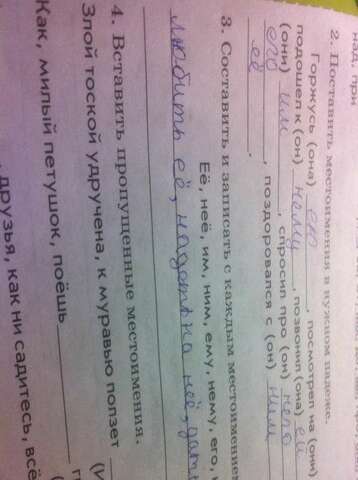 2. Поставить местоимения в нужном падеже.
Горжусь (она) ею, посмотрел на (они)
подошел к (он) нему, позвонил (она) ей
(они) им, спросил про (он) него
его, поздоровался с (он) ним
её.
3. Составить и записать с каждым местоимением
Её, неё, им, ним, ему, нему, его,
любить её, надеть на неё, дать
4. Вставить пропущенные местоимения.
Злой тоской удручена, к муравью ползет
Как, милый петушок, поёшь
друзья, как ни садитесь, всё